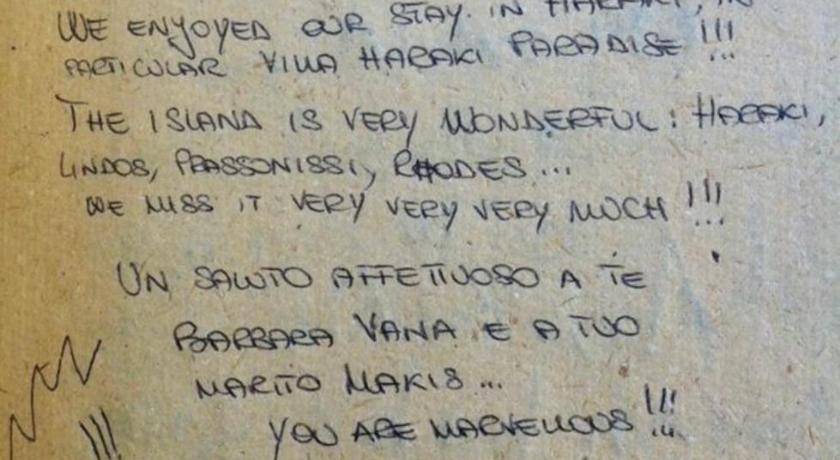 WE ENJOYED OUR STAY. IN HARAKI, IN
PARTICULAR VILLA HARAKI PARADISE !!!
THE ISLAND IS VERY WONDERFUL: HARAKI,
LINDOS, PRASSONISSI, RHODES...
WE MISS IT VERY VERY VERY MUCH !!!
UN SALUTO AFFETTUOSO A TE
BARBARA VANA E A TUO
MARITO MAKIS...
YOU ARE MARVELLOUS !!!
!!!